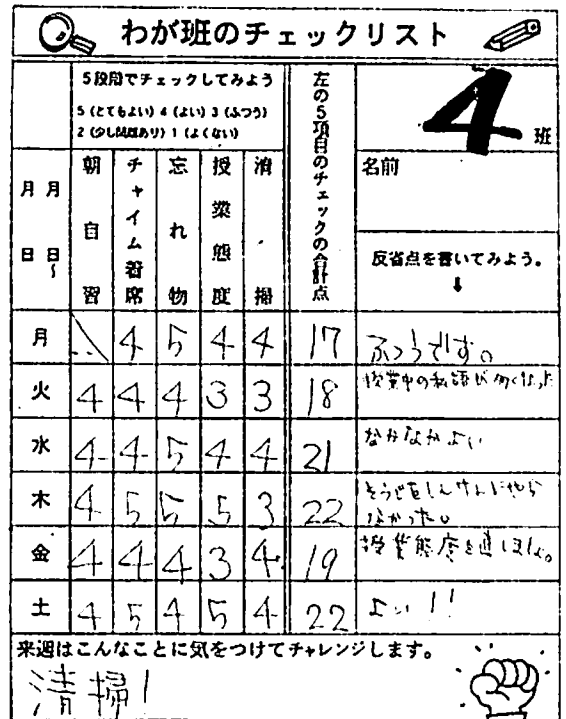 わが班のチェックリスト
5段階でチェックしてみよう
5（とてもよい）4（よい）3（ふつう）
2（少し問題あり）1（よくない）
左の5項目のチェックの合計点
4班
月 日 月 日〜
朝自習
チャイム着席
忘れ物
授業態度
清掃
名前
反省点を書いてみよう。
↓
月 4 5 4 4 17 ふつうです。
火 4 4 4 3 3 18 授業中の私語が多くなった
水 4 4 5 4 4 21 なかなかよい
木 4 5 5 5 3 22 そうじをしんけんにやら
なかった。
金 4 4 4 3 4 19 授業態度を直しましょ。
土 4 5 4 5 4 22 よい！！
来週はこんなことに気をつけてチャレンジします。
清掃！